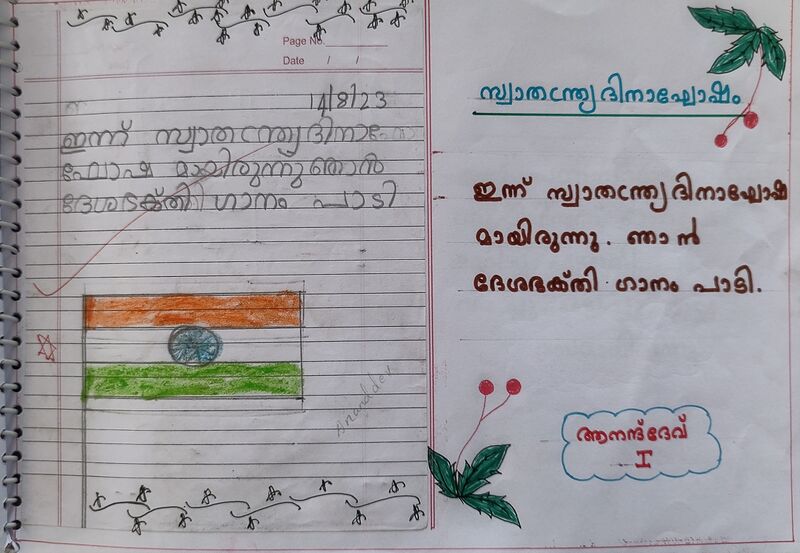 Page No.
Date / /
14/8/23
ഇന്ന് സ്വാതന്ത്ര്യദിനാ
ഘോഷ മായിരുന്നു ഞാൻ
ദേശഭക്തി ഗാനം പാടി
Ananddev
സ്വാതന്ത്ര്യദിനാഘോഷം
ഇന്ന് സ്വാതന്ത്ര്യദിനാഘോഷ
മായിരുന്നു. ഞാൻ
ദേശഭക്തി ഗാനം പാടി.
ആനന്ദ്ദേവ്
I